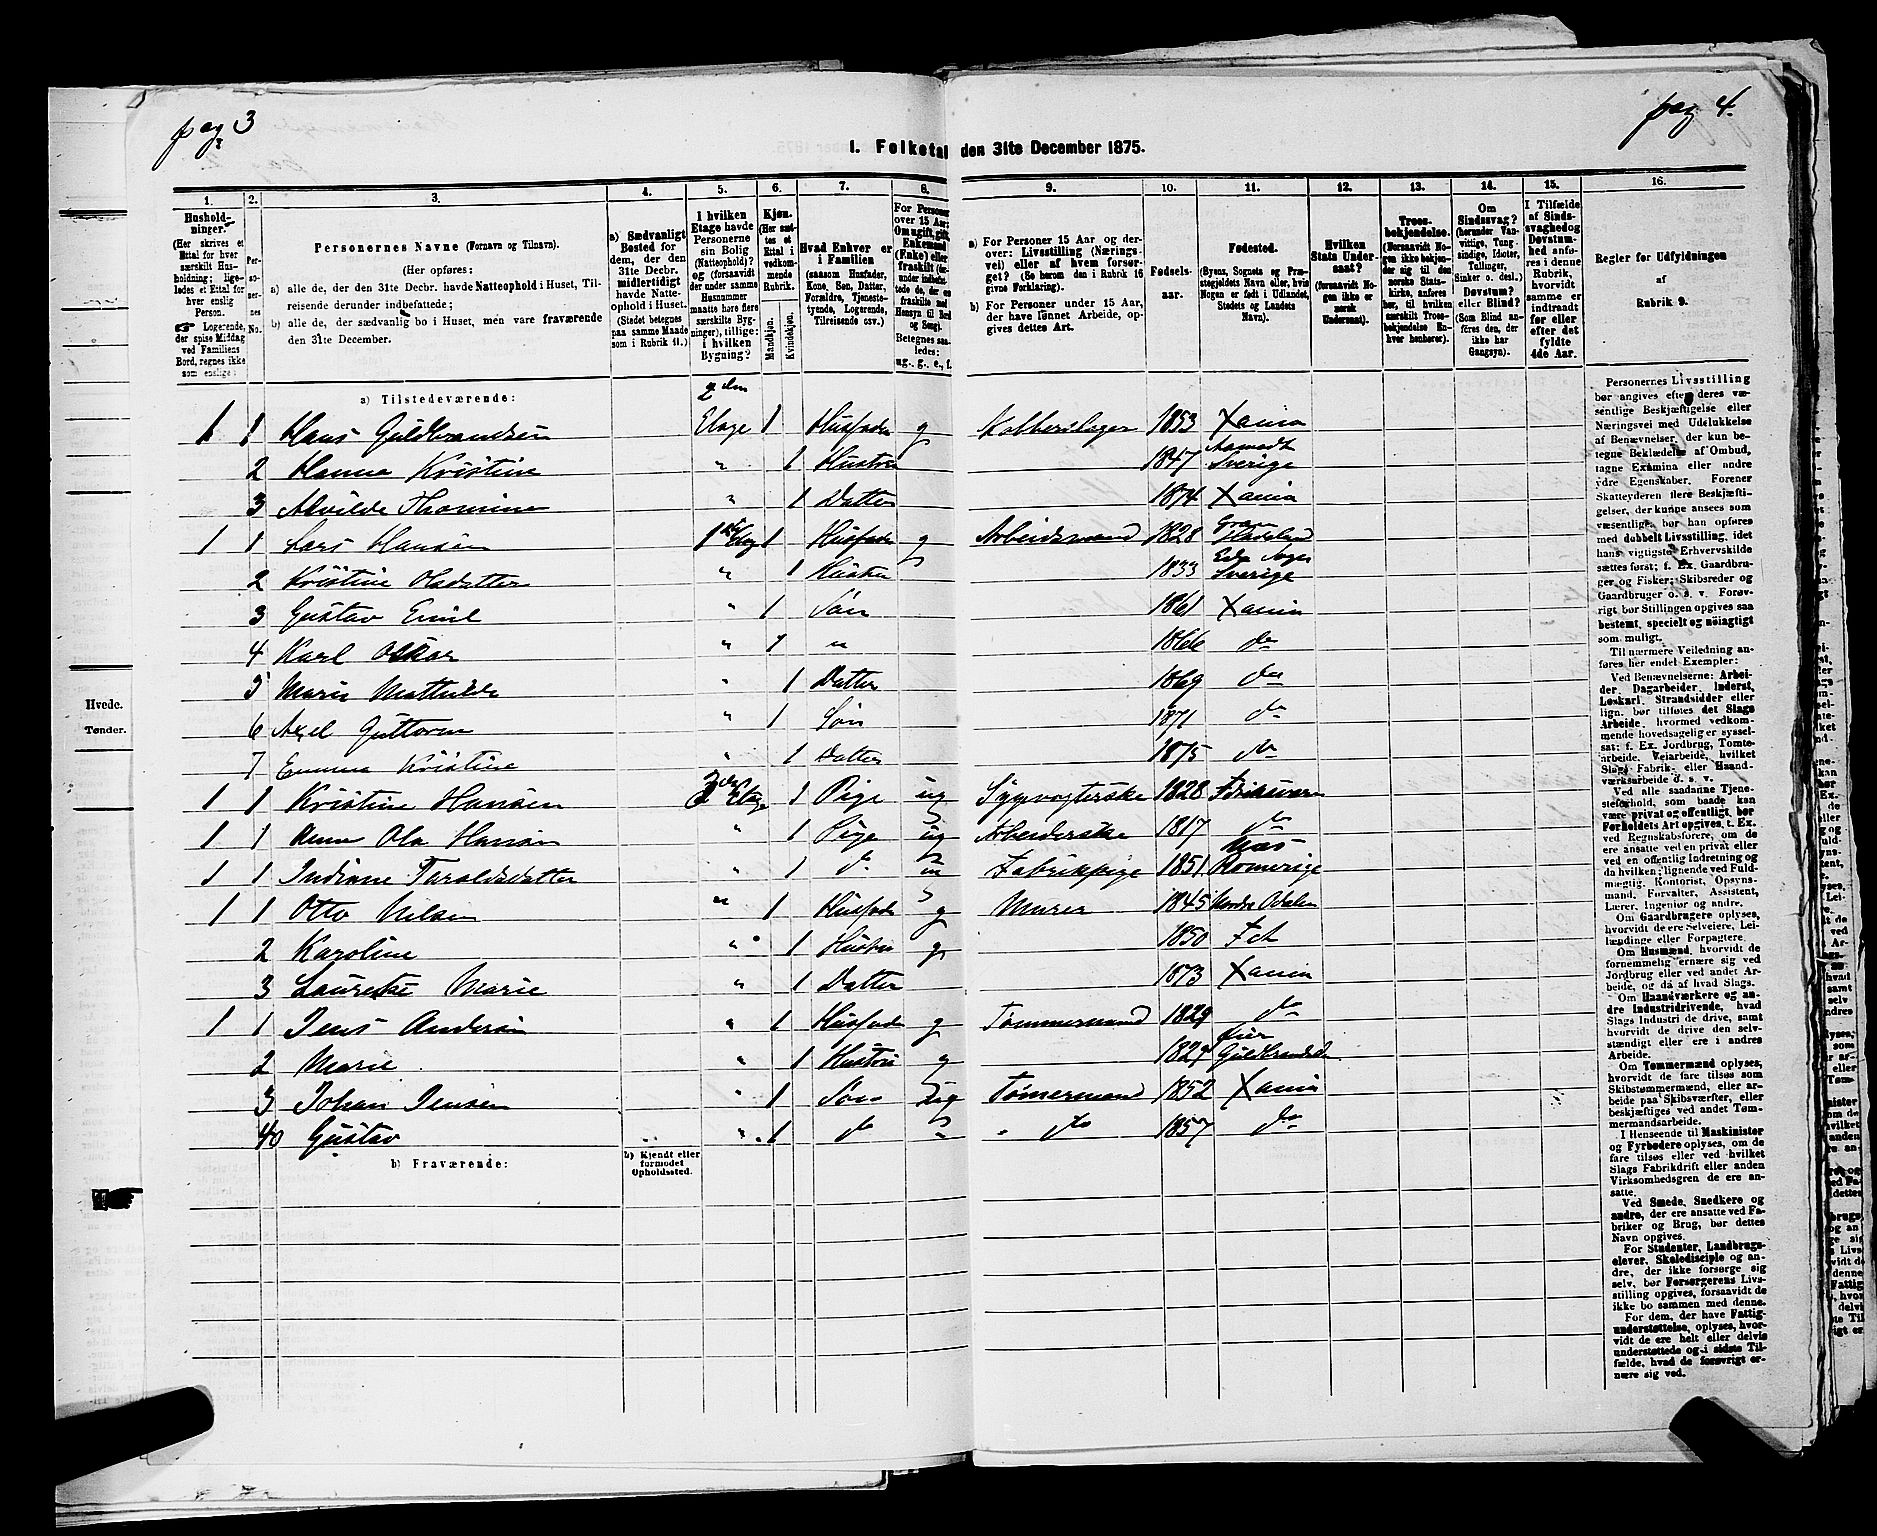 pag 3
pag 4.
1. Folketal den 31te December 1875.
1. 2. 3. 4. 5. 6. 7. 8. 9. 10. 11. 12. 13. 14. 15. 16.
Hushold-
ninger.
(Her skrives et
Ettal for hver
særskilt Hus-
holdning; lige-
ledes et Ettal for
hver enslig
Person.
☞ Logerende,
der spise Middag
ved Familiens
Bord, regnes ikke
som enslige.)
Per-
so-
ner-
nes
No.
Personernes Navne (Fornavn og Tilnavn).
(Her opføres:
a) alle de, der den 31te Decbr. havde Natteophold i Huset, Til-
reisende derunder indbefattede;
b) alle de, der sædvanlig bo i Huset, men vare fraværende
den 31te December.
a) Sædvanligt
Bosted for
dem, der den
31te Decbr.
midlertidigt
havde Natte-
ophold i Huset.
(Stedet betegnes
paa samme Maade
som i Rubrik 11.)
I hvilken
Etage havde
Personerne
sin Bolig
(Natteophold)?
og (forsaavidt
der under samme
Husnummer
maatte høre flere
særskilte Byg-
ninger), tillige:
i hvilken
Bygning?
Kjøn.
(Her sæt-
tes et
Ettal i
vedkom-
mende
Rubrik.
Mandkjøn.
Kvindekjøn.
Hvad Enhver er
i Familien
(saasom Husfader,
Kone, Søn, Datter,
Forældre, Tjeneste-
tyende, Logerende,
Tilreisende osv.)
For Personer
over 15 Aar:
Om ugift, gift,
Enkemand
(Enke) eller
fraskilt
Betegnes saa-
ledes:
ug., g., e., f.
a) For Personer 15 Aar og der-
over: Livsstilling (Nærings-
vei) eller af hvem forsør-
get? (Se herom den i Rubrik 16
givne Forklaring).
b) For Personer under 15 Aar,
der have lønnet Arbeide, op-
gives dettes Art.
Fødsels-
aar.
Fødested.
(Byens, Sognets og Præ-
stegjeldets Navn eller, hvis
Nogen er født i Udlandet,
Stedets og Landets
Navn).
Hvilken
Stats Under-
saat?
(forsaavidt No-
gen ikke er
norsk
Undersaat).
Troes-
bekjendelse.
(Forsaavidt No-
gen ikke bekjen-
der sig til den
norske Stats-
kirke, anføres
her, til hvilken
særskilt Troes-
bekjendelse En-
hver henhører).
Om
Sindssvag?
(herunder Van-
vittige, Tung-
sindige, Idioter,
Tullinger,
Sinker o. desl.)
Døvstum?
eller Blind?
(Som Blind an-
føres den, der
ikke har
Gangsyn).
I Tilfælde
af Sinds-
svaghed og
Døvstum-
hed anfø-
res i denne
Rubrik,
hvorvidt
samme er
indtraadt
før eller
efter det
fyldte
4de Aar.
Regler for Udfyldningen
af
Rubrik 9.
a) Tilstedeværende:
1 1 Hans Guldbrandsen 2den Etage 1 Husfader g Kobberslager 1853 Xania
2 Hanne Kristine " 1 Hustru 1847 Sverige
3 Alvilde Thomine " 1 Datter 1874 Xania
1 1 Lars Hansen 1ste Etag 1 Husfader g Arbeidsmand 1828 Gran Hadeland
2 Kristine Olsdatter " 1 Hustru 1833 Eda Sogn Sverige
3 Gustav Emil " 1 Søn 1861 Xania
4 Karl Oskar " 1 " 1866 do
5 Marie Mathilde " 1 Datter 1869 do
6 Axel Guttorm " 1 Søn 1871 do
7 Emma Kristine " 1 Datter 1875 do
1 1 Kristine Hansen 3die Etage 1 Pige ug 1828
1 1 Anne Ola Hansen " 1 Pige ug Arbeiderske 1817 do
1 1 Indiane Taroldsdatter " 1 do " Fabrikpige 1851 Næs Romerige
1 1 Otto Nilsen " 1 Husfader g Murer 1845 Nordre Odalen
2 Karoline " 1 Hustru g 1850 Fet
3 Laureke Marie " 1 Datter 1873 Xania
1 1 Jens Andersen " 1 Husfader g Tømmermand 1829 do
2 Marie " 1 Hustru g 1827 Øier Guldbrandsda
3 Johan Jensen " 1 Søn ug Tømermand 1852 Xania
4 Gustav " 1 do " " do 1857 do
b) Fraværende:
b) Kjendt eller
formodet
Opholdssted.
Personernes Livsstilling
bør angives efter deres væ-
sentlige Beskjæftigelse eller
Næringsvei med Udelukkelse
af Benævnelser, der kun be-
tegne Beklædelse af Ombud,
tagne Examina eller andre
ydre Egenskaber. Forener
Skatteyderen flere Beskjæfti-
gelser, der kunne ansees som
væsentlige, bør han opføres
med dobbelt Livsstilling, idet
hans vigtigste Erhvervskilde
sættes først; f. Ex. Gaardbru-
ger og Fisker; Skibsreder og
Gaardbruger o. s. v. Forøv-
rigt bør Stillingen opgives saa
bestemt, specielt og nøiagtigt
som muligt.
Til nærmere Veiledning an-
føres her endel Exempler:
Ved Benævnelserne: Arbei-
der, Dagarbeider, Inderst,
Løskarl, Strandsidder eller
lign. bør tilføies det Slags
Arbeide, hvormed vedkom-
mende hovedsagelig er syssel-
sat; f. Ex. Jordbrug, Tomte-
arbeide, Veiarbeide, hvilket
Slags Fabrik- eller Haand-
værksarbeide o. s. v.
Ved alle saadanne Tjene-
steforhold, som baade kan
være privat og offentligt, bør
Forholdets Art opgives, t. Ex.
ved Regnskabsførere, om de
ere ansatte ved en privat eller
ved en offentlig Indretning og
da hvilken; lignende ved Fuld-
mægtig, Kontorist, Opsyns-
mand, Forvalter, Assistent,
Lærer, Ingeniør og andre.
Om Gaardbrugere oplyses,
hvorvidt de ere Selveiere, Lei-
lændinge eller Forpagtere.
Om Husmænd, hvorvidt de
fornemmelig ernære sig ved
Jordbrug eller ved andet Ar-
beide, og da af hvad Slags.
Om Haandværkere og an-
dre Industridrivende, hvad
Slags Industri de drive, samt
hvorvidt de drive den selv-
stændigt eller ere i andres
Arbeide.
Om Tømmermænd oplyses,
hvorvidt de fare tilsøs som
Skibstømmermænd, eller ar-
beide paa Skibsværfter, eller
beskjæftiges ved andet Tøm-
mermandsarbeide.
I Henseende til Maskinister
og Fyrbødere oplyses, om de
fare tilsøs eller ved hvilket
Slags Fabrikdrift eller anden
Virksomhedsgren de ere an-
satte.
Ved Smede, Snedkere og
andre, der ere ansatte ved Fa-
briker og Brug, bør dettes
Navn opgives.
For Studenter, Landbrugs-
elever, Skoledisciple og an-
dre, der ikke forsørge sig
selv, bør Forsørgerens Livs-
stilling opgives, forsaavidt de
ikke bo sammen med denne.
For dem, der have Fattig-
understøttelse, oplyses, hvor-
vidt de ere helt eller delvis
understøttede og i sidste Til-
fælde, hvad de forøvrigt er-
nære sig ved.
Hvede.
Tønder.